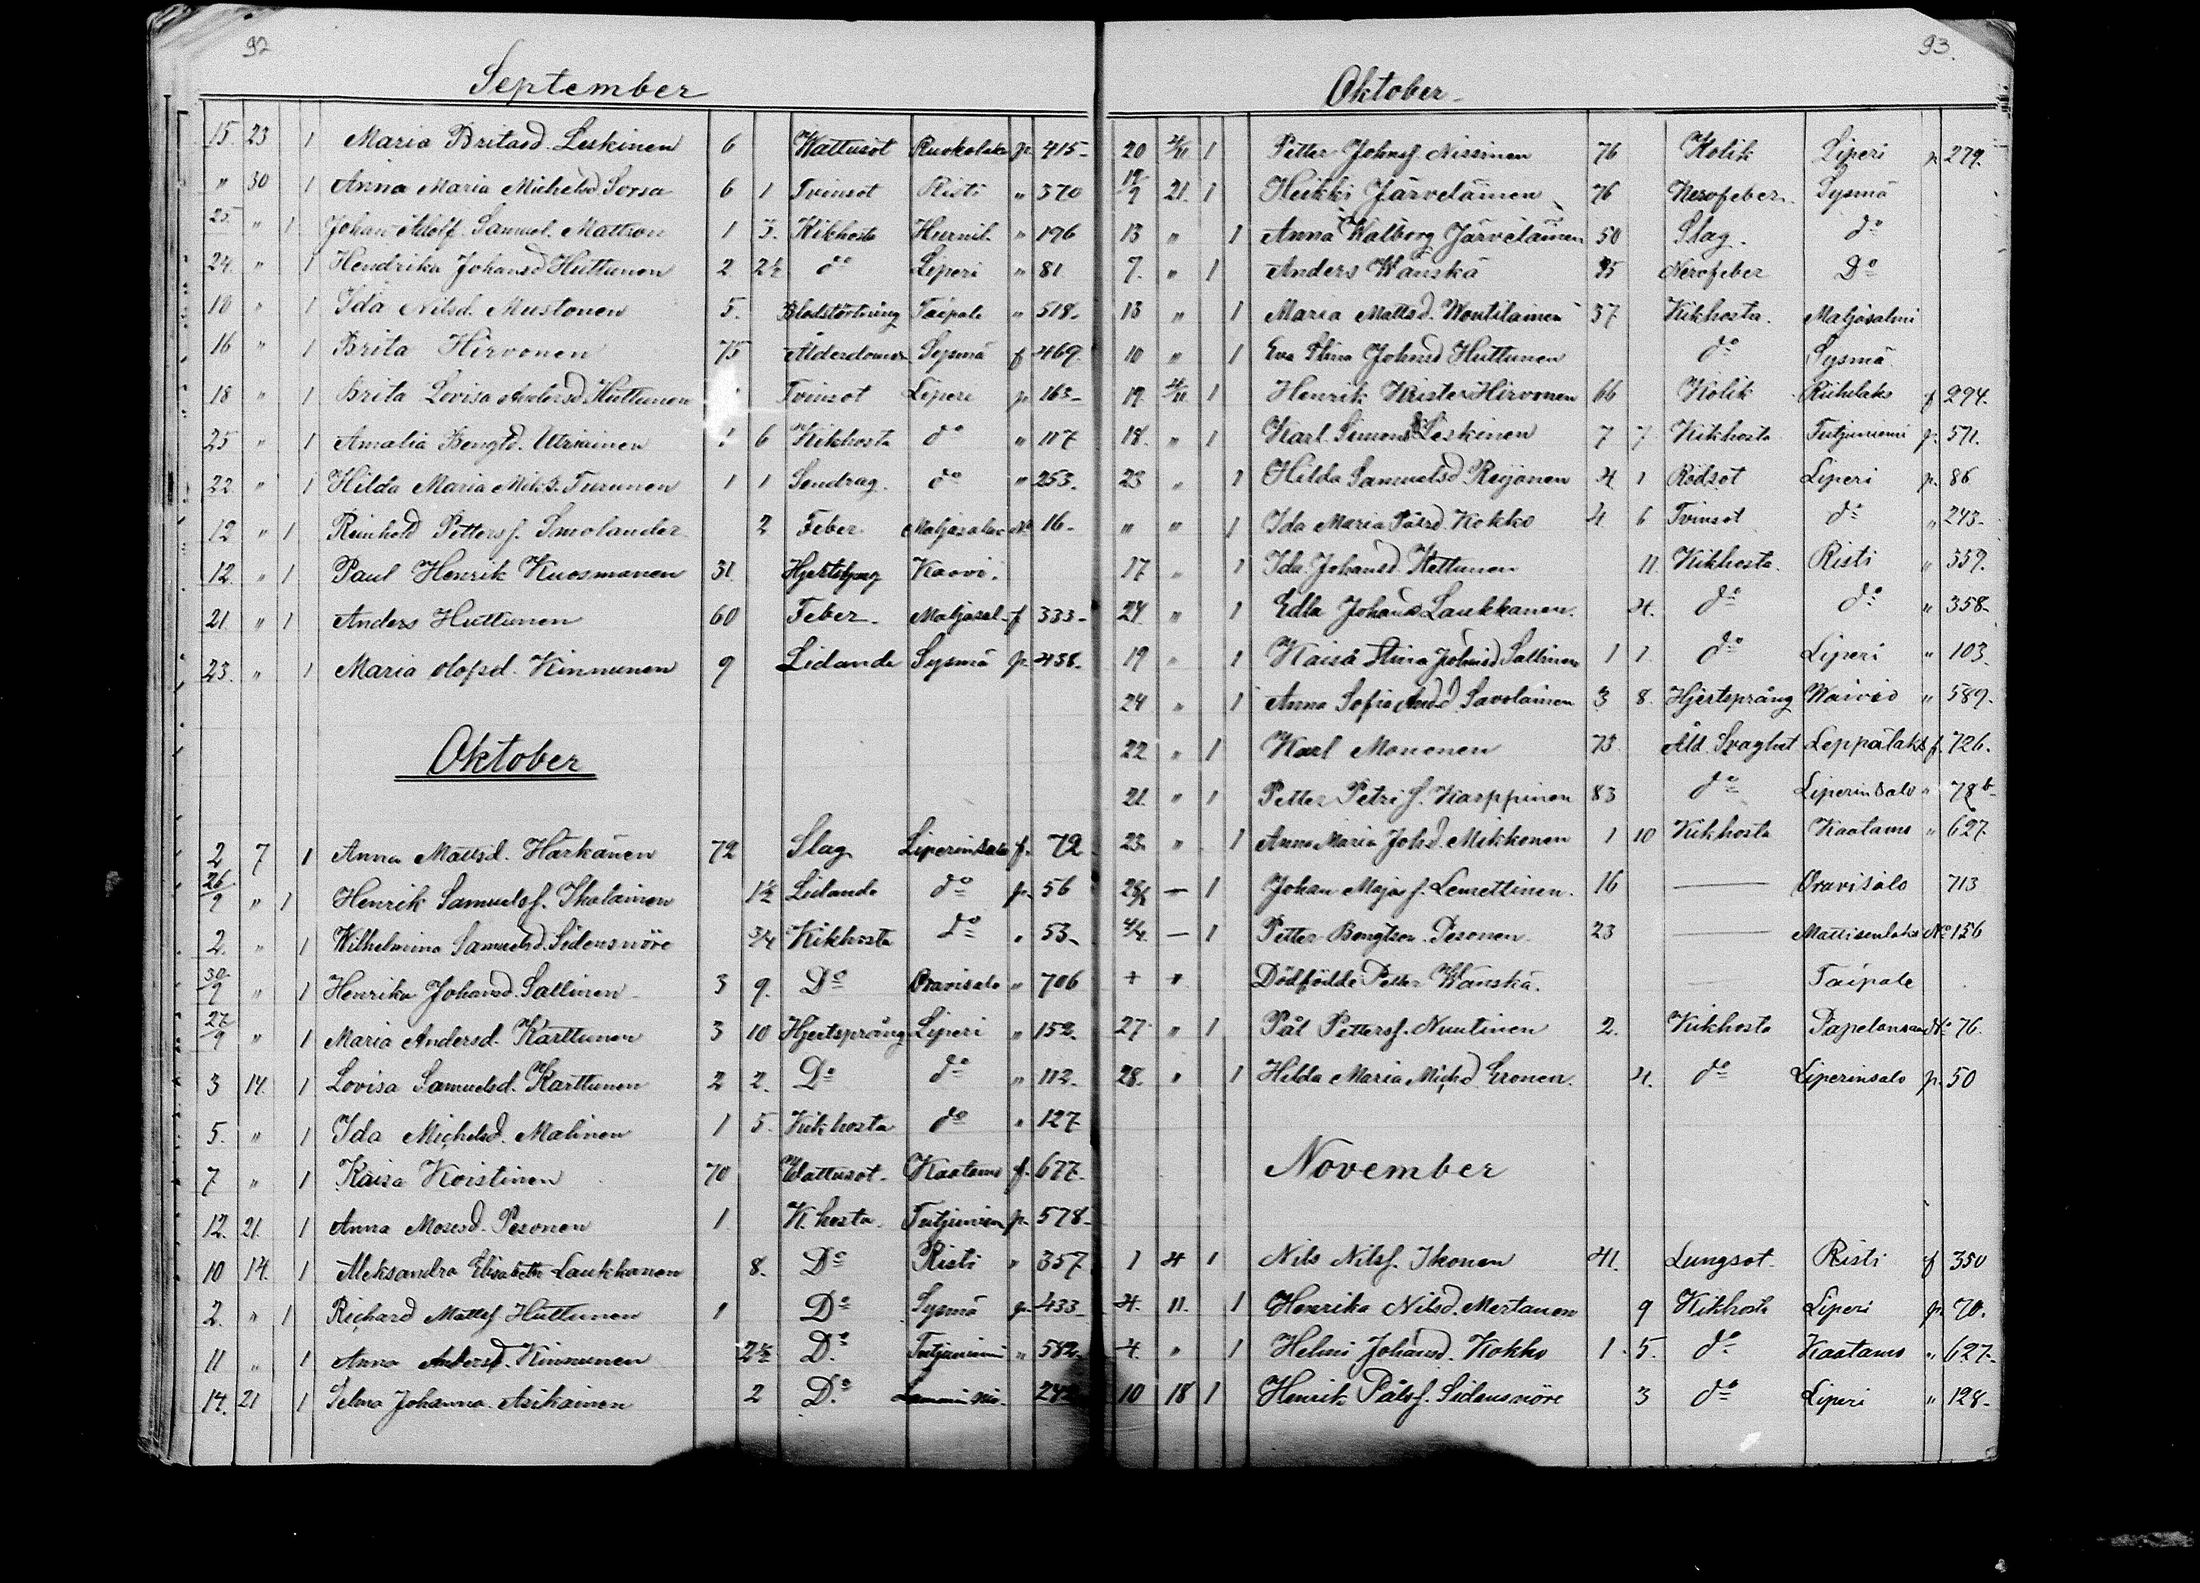 92
September
15. 23 1 Maria Britasd. Leskinen 6 Wattusot Ruokolaks p. 415
" 30 1 Anna Maria Michelsd Sorsa 6 1 Tvinsot Risti " 370
25 " 1 Johan Adolf Samuel Mattson 1 3. Kikhosta " 196
24. " 1 Hendrika Johansd Huttunen 2 2½ do Liperi " 81
10 " 1 Ida Nilsd. Mustonen 5. Blodstörtning Taipale " 518
16 " 1 Brita Hirvonen 75 Ålderdomsv Sysmä f 469
18 " 1 Brita Lovisa Andersd. Huttunen Tvinsot Liperi p 163
25 " 1 Amalia Bengtd. Utriainen 1 6 Kikhosta do " 117
22 " 1 Hilda Maria Mikd. Turunen 1 1 Sendrag do " 253.
12 " 1 Reinhold Pettersf. Smolander 2 Feber Maljasalm No 16
12. " 1 Paul Henrik Kuosmanen 31 Kaavi.
21. " 1 Anders Huttunen 60 Feber Maljasal f 333
23. " 1 Maria Olofsd. Kinnunen 9 Lidande Sysmä p. 438
Oktober
2 7 1 Anna Mattsd. Härkänen 72 Slag Liperinsalo f. 72
26/9 " 1 Henrik Samuelsf. Ikolainen 1½ Lidande do p. 56
2. " 1 Wilhelmina Samuelsd. Sidensnöre 3/4 Kikhosta do " 53
30/9 " 1 Henrika Johansd. Sallinen 3 9. Do Oravisalo " 706
27/9 " 1 Maria Andersd. Karttunen 3 10 Hjertsprång Liperi " 152.
3 14. 1 Lovisa Samuelsd. Karttunen 2 2. Do do " 112.
5. " 1 Ida Michelsd. Malinen 1 5. Kikhosta do " 127
7 " 1 Kaisa Koistinen 70 Wattusot Kaatamo f. 677
12. 21. 1 Anna Mosesd. Pesonen 1 K. hosta Tutjuniem p. 578
10 14. 1 Aleksandra Elisabeth Laukkanen 8. Do Risti " 357
2. " 1 Richard Mattsf Huttunen 1 Do Sysmä p. 433
11 " 1 Anna Andersd. Kinnunen 2½ Do Tutjuniemi " 582
14. 21 1 Selma Johanna Asikainen 2 Do
93.
Oktober
20 4/11 1 Petter Johnsf. Nissinen 76 Kolik Liperi p 279.
19/9 21. 1 Heikki Järveläinen 76 Nervfeber Sysmä
13 " 1 Anna Walborg Järveläinen 50 Slag. do
7. " 1 Anders Wänskä Nervfeber Do
13 " 1 Maria Mattsd. Wontilainen 37 Kikhosta. Maljasalmi
10 " 1 Eva Stina Johnsd Huttunen do Sysmä
19. 4/11 1 Henrik Krister Hirvonen 66 Kolik Riihilaks f 294.
18. " 1 Karl Simons Leskinen 7 7 Kikhosta Tutjuniemi p. 571.
23 " 1 Hilda Samuelsd. Reijonen 4. 1 Rödsot Liperi p. 86
" " 1 Ida Maria Pålsd. Kokko 4 6 Tvinsot do " 243
17 " 1 Ida Johansd. Kettunen 11. Kikhosta. Risti " 339.
24 " 1 Edla Johans Laukkanen. 4. do do " 358
19 " 1 Kaisa Stina Johnsd Sallinen 1 1. do Liperi " 103.
24 " 1 Anna Sofia Andd. Savolainen 3 8. Hjertsprång Waivio " 589.
22 " 1 Karl Mononen 73 Åld. Svaghet Leppälaks f. 726.
21. " 1 Petter Petri f. Karppinen 83 do Liperinsalo " 78b
23. " 1 Anna Maria Johd. Mikkonen 1 10 Kikhosta Kaatamo " 627
— 1 Johan Majas f. Lemettinen. 16 — Oravisalo 713
— 1 Petter Bengtson. Pesonen. 23 — Mattisenlaks No 156
+ + Dödfödde Petter Wänskä. — Taipale
27. " 1 Pål Pettersf. Nuutinen 2. Kikhosta No 76.
28. " 1 Hilda Maria Michd. Eronen. 4. do Liperinsalo p. 50
November
1 4 1 Nils Nilsf. Ikonen 41. Lungsot. Risti f 350
4. 11. 1 Henrika Nilsd. Mertanen 9 Kikhosta Liperi p. 70.
4. " 1 Helmi Johansd. Kokko 1 5. do Kaatamo " 627
10 18 1 Henrik Pålsf. Sidensnöre 3 do Liperi " 128